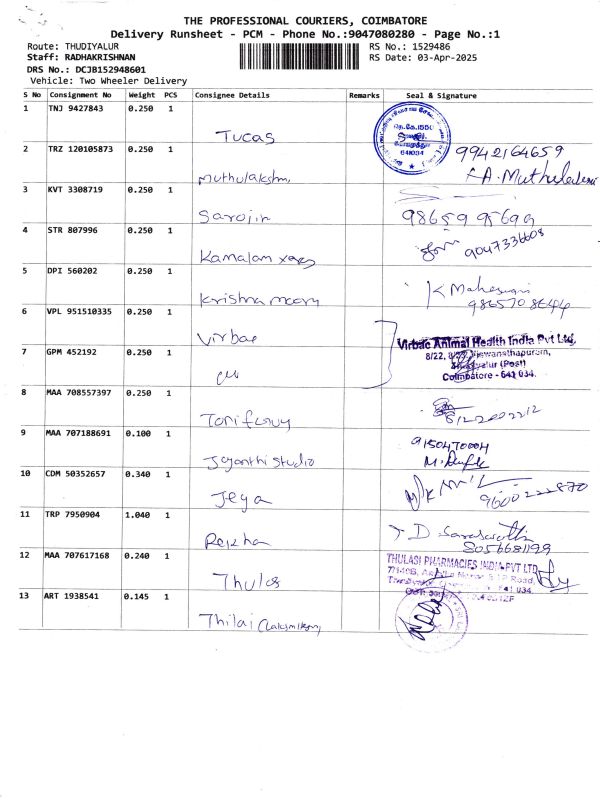 THE PROFESSIONAL COURIERS, COIMBATORE
Delivery Runsheet - PCM - Phone No.:9047080280 - Page No.:1
Route: THUDIYALUR RS No.: 1529486
Staff: RADHAKRISHNAN RS Date: 03-Apr-2025
DRS No.: DCJB152948601
Vehicle: Two Wheeler Delivery
S No Consignment No Weight PCS Consignee Details Remarks Seal & Signature
1 TNJ 9427843 0.250 1
Tucas
641034
2 TRZ 120105873 0.250 1
9942164659
Muthulakshmi
3 KVT 3308719 0.250 1
Sarojin
98659 95699
4 STR 807996 0.250 1
Kamalam
9047336608
5 DPI 560202 0.250 1
Krishna moory
K Maheswari
6 VPL 951510335 0.250 1
Virbac
Virbac Animal Health India Pvt Ltd,
7 GPM 452192 0.250 1
Coimbatore - 641 034.
8 MAA 708557397 0.250 1
9 MAA 707188691 0.100 1
9150470004
Jayanthi studio
10 CDM 50352657 0.340 1
Jeya
9600222870
11 TRP 7950904 1.040 1
D. Saraswathi
8056681199
12 MAA 707617168 0.240 1
THULASI PHARMACIES INDIA PVT LTD
Thulas
13 ART 1938541 0.145 1
Thilai